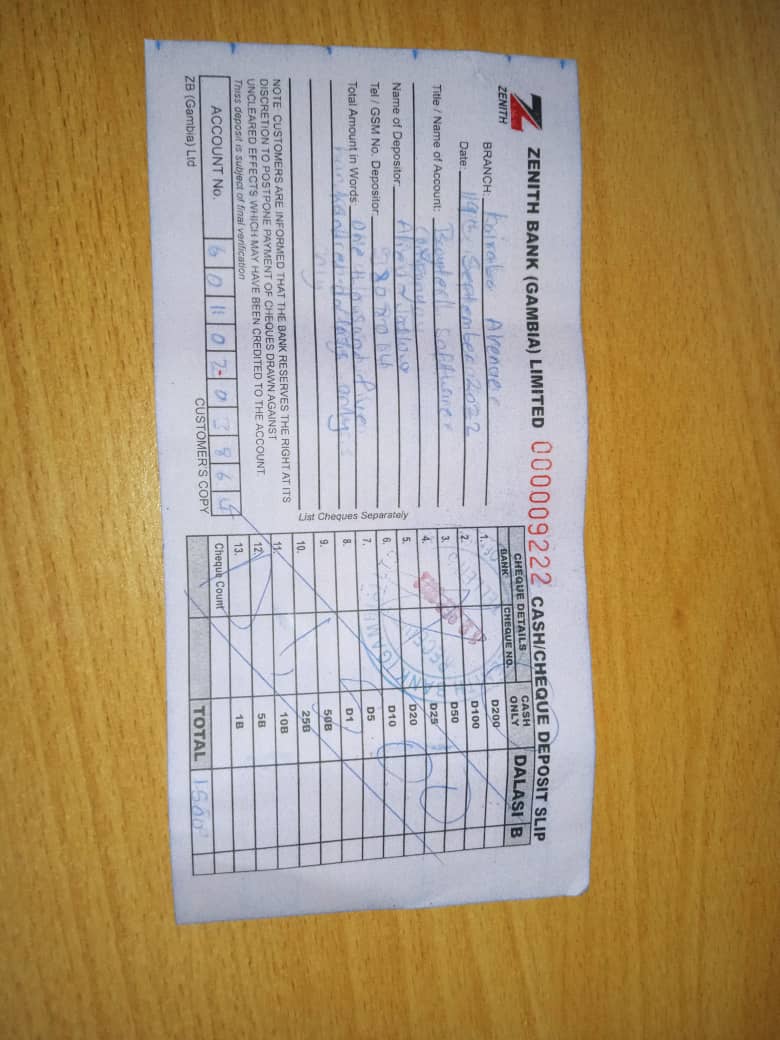 ZENITH
ZENITH BANK (GAMBIA) LIMITED 000009222 CASH/CHEQUE DEPOSIT SLIP
BRANCH: Kairaba Avenue
Date: 19th, September 2022
Title / Name of Account: Software
Name of Depositor
Tel / GSM No. Depositor
Total Amount in Words: One thousand five
hundred dalasis only
NOTE CUSTOMERS ARE INFORMED THAT THE BANK RESERVES THE RIGHT AT ITS
DISCRETION TO POSTPONE PAYMENT OF CHEQUES DRAWN AGAINST
UNCLEARED EFFECTS WHICH MAY HAVE BEEN CREDITED TO THE ACCOUNT.
Thiss deposit is subject of final verification
ACCOUNT No.
ZB (Gambia) Ltd
CUSTOMER'S COPY
List Cheques Separately
CHEQUE DETAILS
BANK
CHEQUE NO.
CASH ONLY
DALASI
B
1. D200
2. D100
3. D50
4. D25
5. D20
6. D10
7. D5
8. D1
9. 50B
10. 25B
11. 10B
12. 5B
13. 1B
Cheque Count
TOTAL 1500